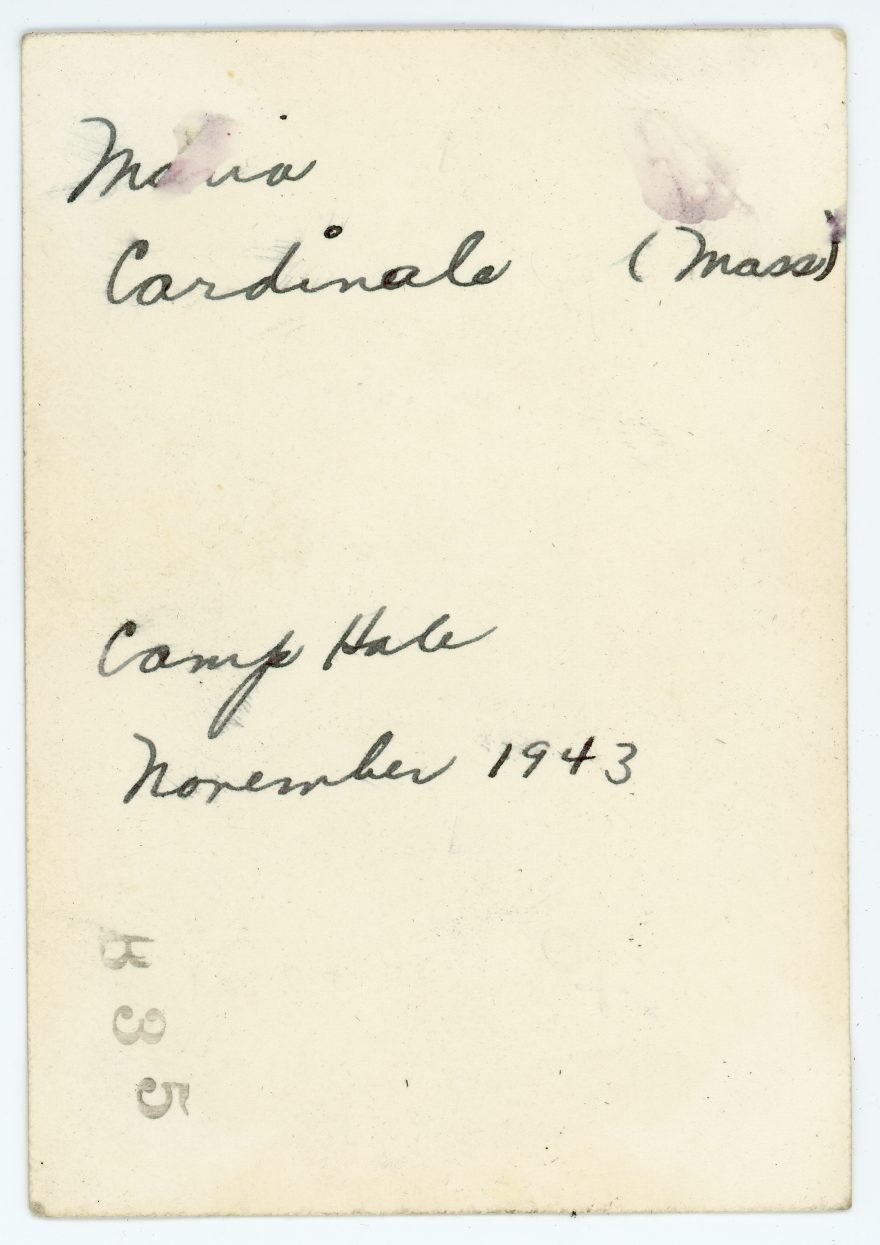 Maria
Cardinale (Mass)
Camp Hale
November 1943
35